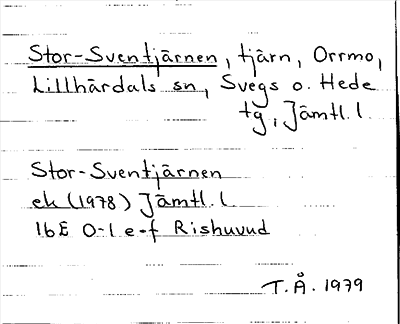 Stor-Sventjärnen, tjärn, Orrmo,
Lillhärdals sn, Svegs o. Hede
tg, Jämtl. l.
Stor-Sventjärnen
ek (1978) Jämtl. l
16E 0-1 e-f Rishuvud
T. Å. 1979